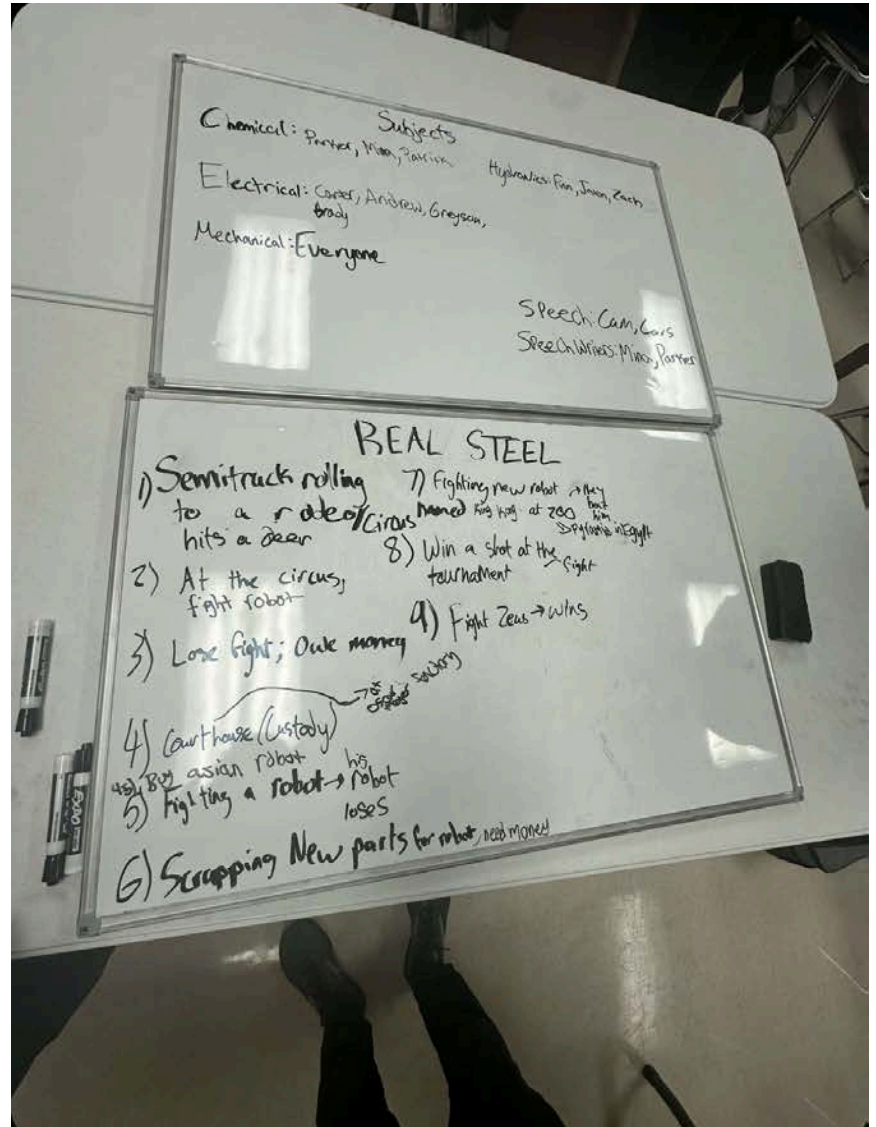 Subjects
Chemical: Parker, Mina, Patrick
Hydraulics: Finn, Jaxon, Zach
Electrical: Carter, Andrew, Greyson,
Brady
Mechanical: Everyone
Speech: Cam, Cars
Speech Writers: Mina, Parker
REAL STEEL
1) Semitruck rolling
to a rodeo/Circus
hits a deer
2) At the circus,
fight robot
3) Lose fight; Owe money
4) Courthouse (Custody)
4.5) Buy asian robot
5) Fighting a robot → his
robot
loses
6) Scrapping New parts for robot, need money
7) Fighting new robot → they
named King Kong at zoo beat
him
in Egypt
8) Win a shot at the
tournament → fight
9) Fight Zeus → wins
EXPO